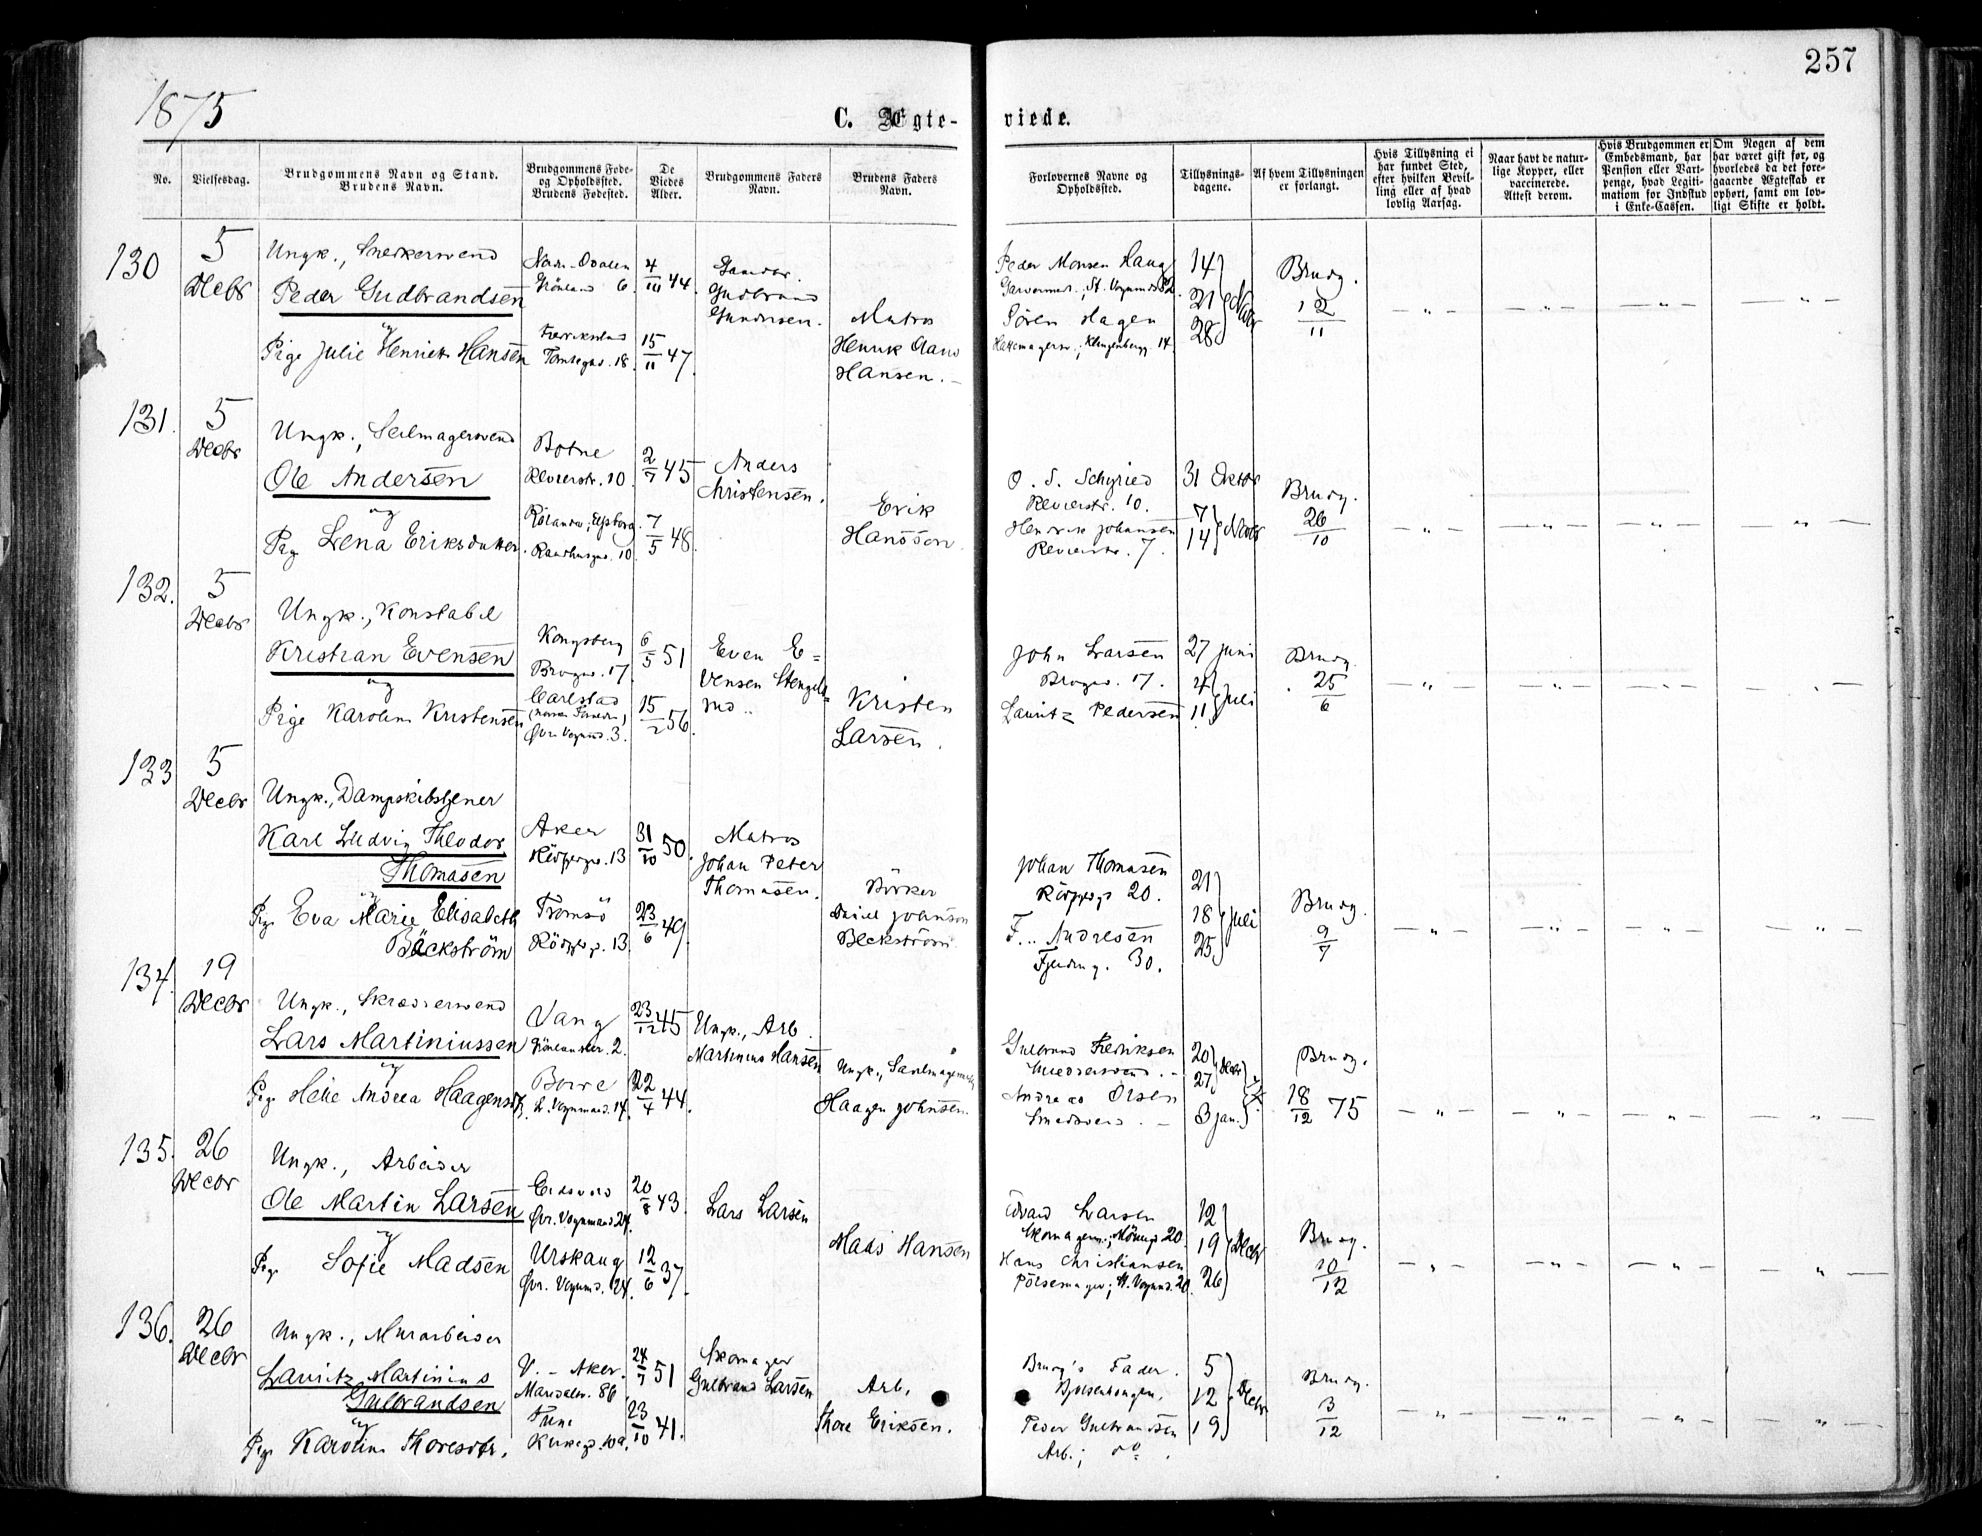 257
1875
C. Ægte- viede.
No.
Vielsesdag.
Brudgommens Navn og Stand.
Brudens Navn.
Brudgommens Føde-
og Opholdssted.
Brudens Fødested.
De
Viedes
Alder.
Brudgommens Faders
Navn.
Brudens Faders
Navn.
Forlovernes Navne og
Opholdssted.
Tillysnings-
dagene.
Af hvem Tillysningen
er forlangt.
Hvis Tillysning ei
har fundet Sted,
efter hvilken Bevil-
ling eller af hvad
lovlig Aarsag.
Naar havt de natur-
lige Kopper, eller
vaccinerede.
Attest derom.
Hvis Brudgommen er
Embedsmand, har
Pension eller Vart-
penge, hvad Legiti-
mation for Indskud
i Enke-Cassen.
Om Nogen af dem
har været gift før, og
hvorledes da det fore-
gaaende Ægteskab er
ophørt, samt om lov-
ligt Skifte er holdt.
130
5
Decbr
Ungk., Snedkersvend
Peder Gudbrandsen
og
Pige Julie Henriette Hansen
Grönland 6.
4/10 44.
Fredrikshald
Tomtegd. 18.
15/11 47.
Gaardbr.
Gudbrand
Gundersen.
Matros
Henrik
Hansen. —
Peder Monsen Haug
Garverm.; St. Vognmd 2.
Sören Hagen
Hattemagersv.; Klingenbergg. 14.
14
21
28
Novbr
Brudg.
12/11
— „ — — „ — — „ — — „ —
131.
5
Decbr
Ungk., Seilmagersvend
Ole Andersen
og
Pig Lena Eriksdatter.
Botne
Revierstr. 10.
2/7 45
Raadhusgd. 10.
7/5 48.
Anders
Christensen.
Erik
Hansson.
O. S. Schyried
Revierstr. 10.
Henrik Johansen
Revierstr. 7.
31 Oktbr
7
14
Novbr
Brudg.
26/10
— „ — — „ — — „ — — „ —
132.
5
Decbr
Ungk., Konstabel
Kristian Evensen
og
Pige Karoline Kristensen
Kongsberg
Brogd. 17.
6/5 51
Carlstad
Øvr. Vognmd. 3.
15/2 56.
Even E=
vensen Stengels=
rud.
Kristen
Larsen.
John Larsen
Brogd. 17.
Lauritz Pedersen
27 Juni
4
11
Juli
Brudg.
25/6
— „ — — „ — — „ — — „ —
133
5
Decbr
Ungk., Dampskibstjener
Karl Ludvig Theodor
Thomasen
og
Pige Eva Marie Elisabeth
Bäckström
Aker
Rödfyrgd. 13
31/10 50.
Tromsö
Rödfyrg. 13.
23/6 49.
Matros
Johan Peter
Thomasen.
Bödker
Daniel Johnson
Beckström.
Johan Thomasen
Rödfyrg. 20.
F. Andresen
Fjerding. 30.
21
18
25
Juli
Brudg.
9/7
— „ — — „ — — „ — — „ —
134.
19
Decbr
Ungk., Skrædersvend
Lars Martiniussen
og
Pige Helle Andrea Haagensdtr.
Vang
Grönlandsler. 2.
23/12 45
Borre
L. Vognmand. 14.
22/4 44.
Ungk., Arb.
Martinius Hansen
Ungk., Seilmagersv.
Haagen Johnsen.
Gulbrand Fredriksen
Snedkersvend. —
Andreas Olsen
Smedsvend. —
20
27
Decbr
3 Jan.
Brudg.
18/12 75
— „ — — „ — — „ — — „ —
135.
26
Decbr
Ungk., Arbeider
Ole Martin Larsen
og
Pige Sofie Madsen
Eidsvold
Øvr. Vognmand 24.
20/8 43
Urskaug
Øvr. Vognmd. 24.
12/6 37.
Lars Larsen
Mads Hansen
Edvard Larsen
Skomagerm.; Möllergd 20.
Hans Christiansen
Pölsemager; St. Vognmd. 20.
12
19
26
Decbr
Brudg.
10/12
— „ — — „ — — „ — — „ —
136.
26
Decbr
Ungk., Murarbeider
Lauritz Martinius
Gulbrandsen
og
Pige Karoline Thoresdtr.
V. - Aker.
Maridalsv. 86.
24/7 51
Tune
Kirkegd. 10a.
23/10 41.
Skomager
Gulbrand Larsen
Arb.
Thore Eriksen.
Brudg's Fader.
Bjölsenhaugen.
Peder Gulbrandsen
Arb.; do.
5
12
19
Decbr
Brudg.
3/12
— „ — — „ — — „ — — „ —